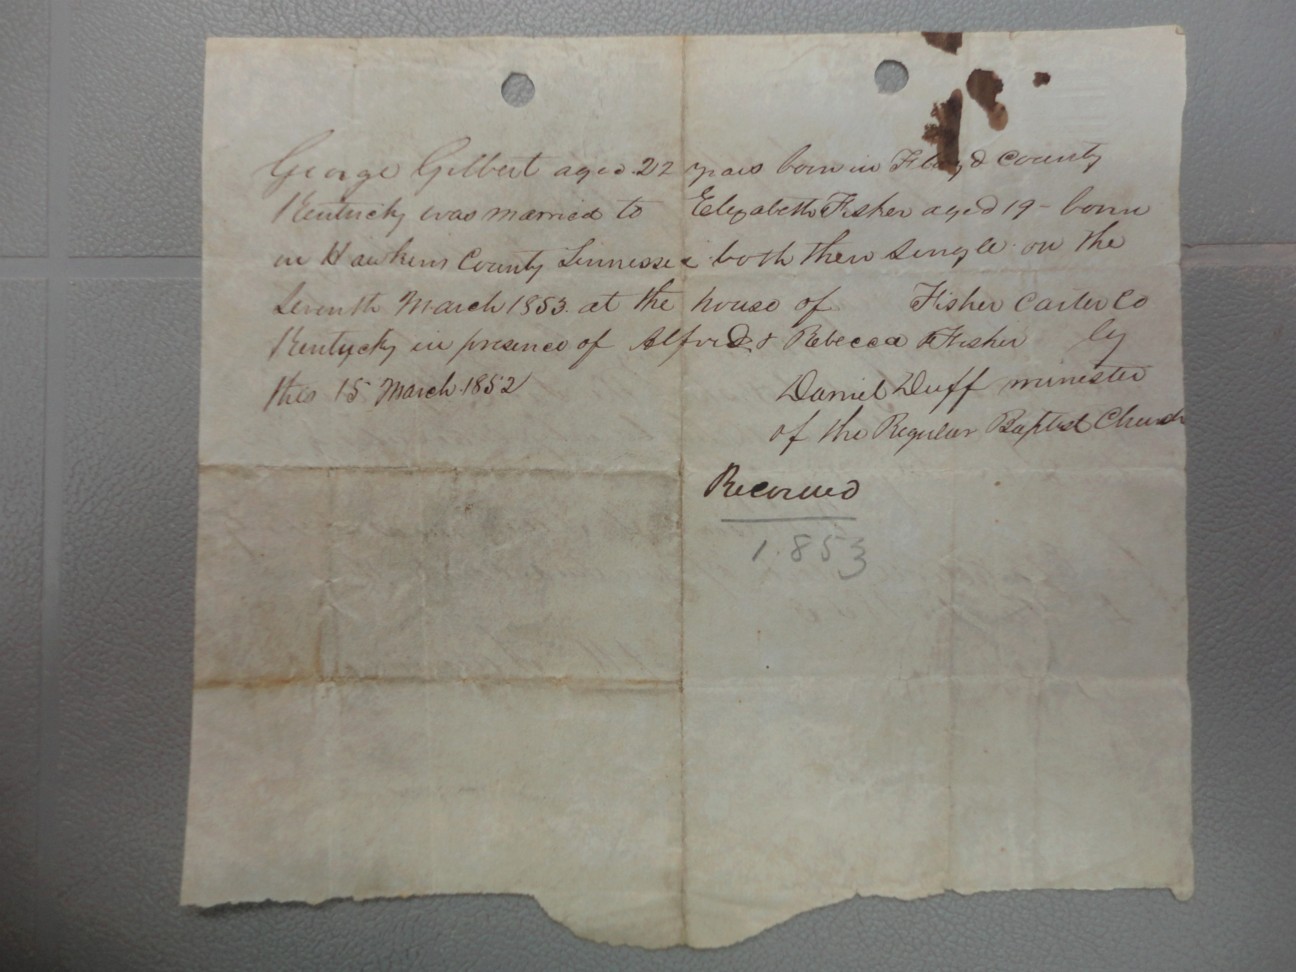 George Gilbert aged 22 years born in Floyd County
Kentucky was married to Elizabeth Fisher aged 19 - born
in Hawkins County Tennessee both then single on the
Seventh March 1853 at the house of Fisher Carter Co
Kentucky in presence of Alfred & Rebecca Fisher by
this 15 March 1852 Daniel Duff minister
of the Regular Baptist Church
Recorded
1853